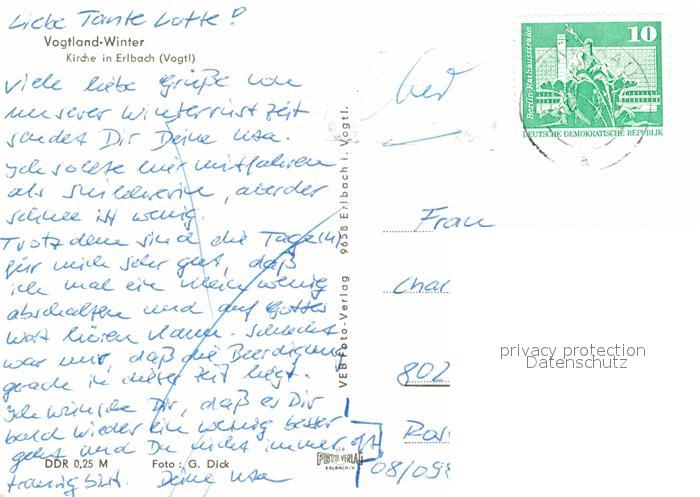 Liebe Tante Lotte!
Vogtland-Winter
Kirche in Erlbach (Vogtl)
viele liebe Grüße von
unserer Winterrüstzeit
sendet Dir Deine
Ich sollte hier mitfahren
als, aber der
Schnee ist wenig.
Trotzdem sind die Tage (4)
für mich sehr gut, daß
ich mal ein klein wenig
abschalten und auf Gottes
Wort hören kann. Schade
war nur, daß die Beerdigung
gerade in dieser Zeit liegt.
Ich wünsche Dir, daß es Dir
bald wieder ein wenig besser
geht und Du nicht immer oft
traurig bist. Deine
DDR 0,25 M Foto: G. Dick
VEB Foto-Verlag 9658 Erlbach i. Vogtl.
FOTO VERLAG
ERLBACH/V.
10
Berlin · Rathausstraße
DEUTSCHE DEMOKRATISCHE REPUBLIK
Frau
Char
802
Ros
08/099
privacy protection
Datenschutz